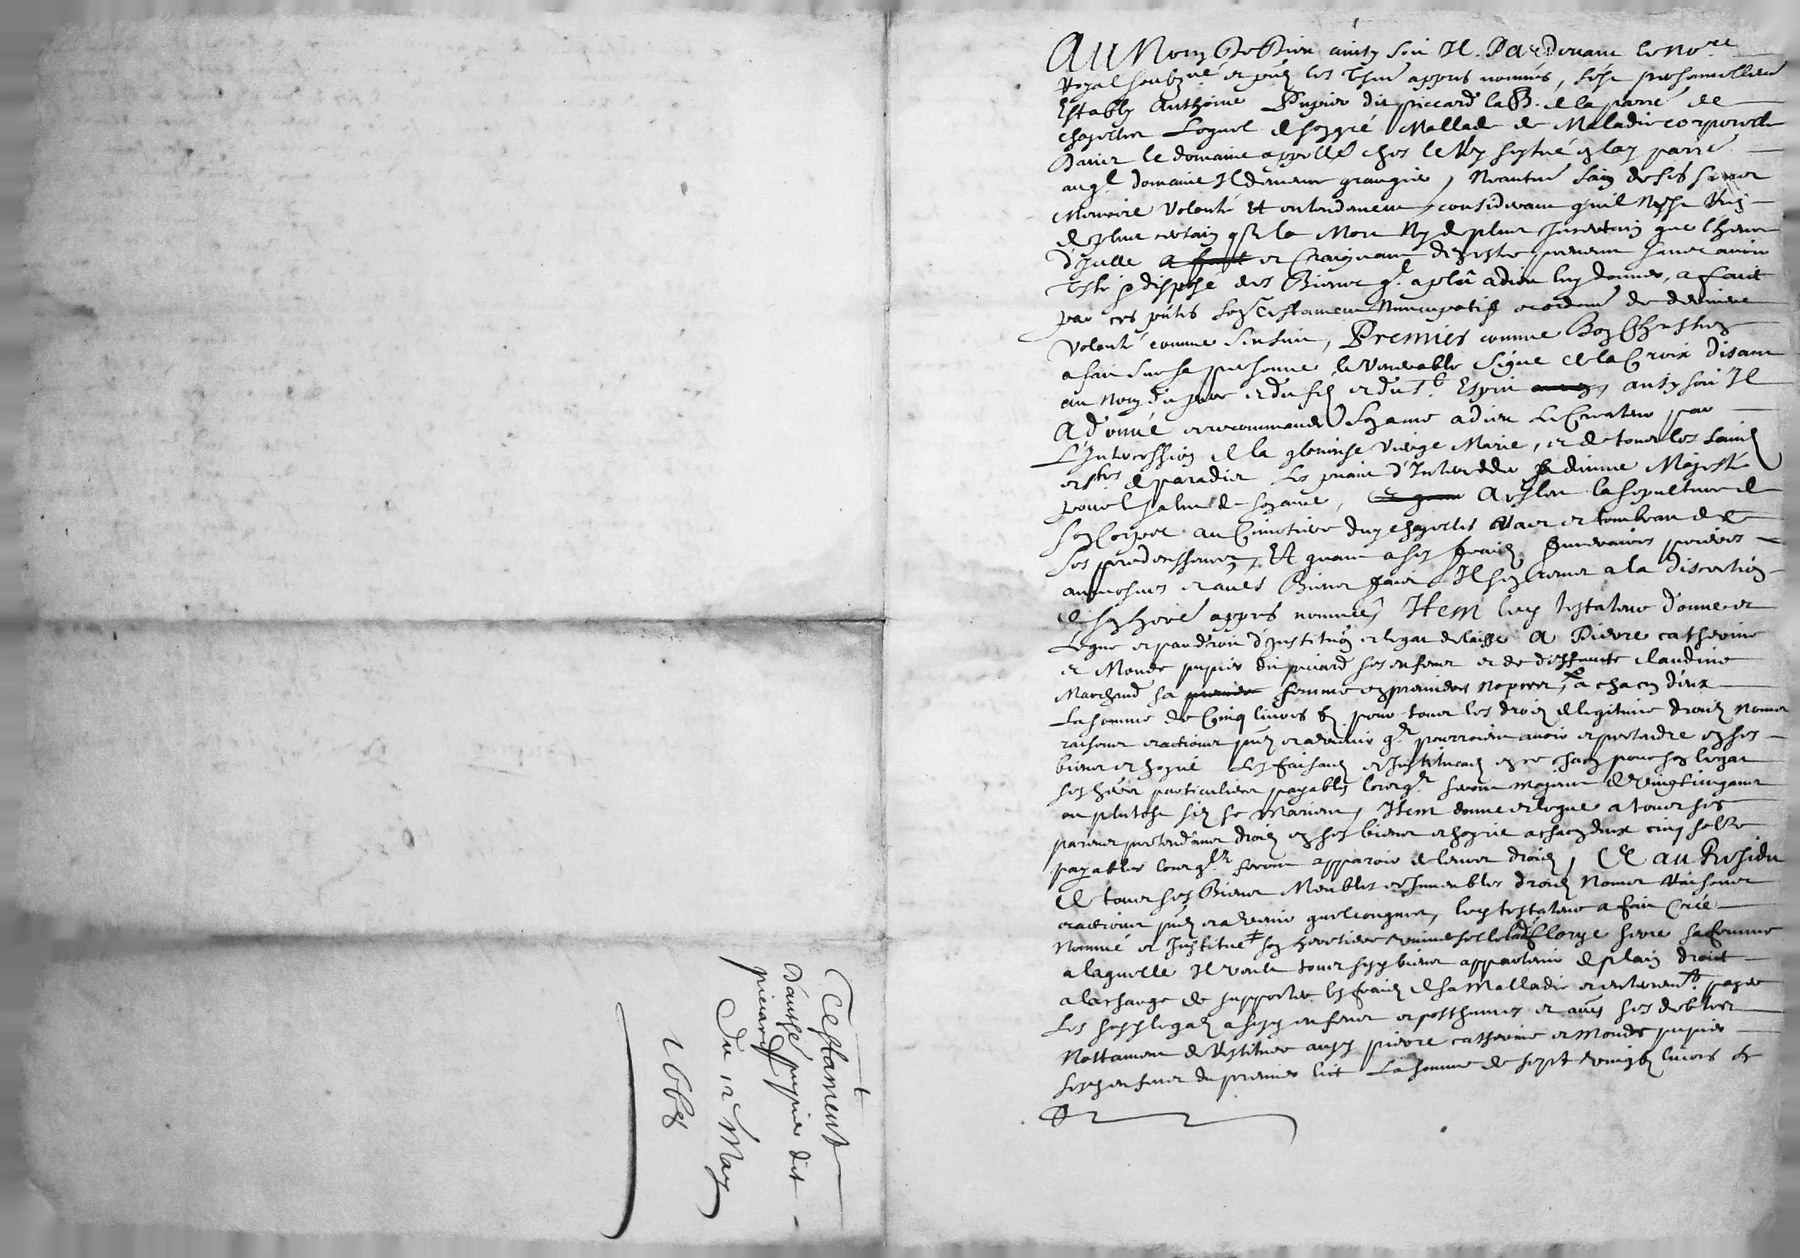 Testament
d'anthe pupier dit
piccard
Du 12 May
1668
AU Nom De Dieu ainsy soit Il. Pardevant le no.re
Royal soubzné et pntz les tesmo appres nommés, s'est personnellement
Estably Anthoine Pupier dit piccard lab.r de la parr.e de
chazelles Lequel de son gré Mallade de Maladie corporelle
Dans le domaine appellé chez le Roy scytué en lad parr.e
auql domaine Il demeure granger, Neantm sain de ses sens
Memoire Volonté Et entendement, considerant quil Nest Rien
de plus certain que la Mort Ny de plus Incertain que l'heure
d'Icelle et Craignant d'estre prevenu sans avoir
testé et disposé des Biens q. a pleû a dieu luy donner, a fait
par ces pntes son testament Nuncupatif et ordon.ce de derniere
Volonté comme s'ensuit, Premier comme Bon Chrestien
a fait sur sa personne le Venerable Signe de la Croix disant
au nom du pere et du filz et du St. Esprit ainsy soit Il
A donné et recommandé son ame a dieu Le Createur par
L'Intercession de la glorieuse Vierge Marie, et de tous les sainctz
et stes de paradis Les priant d'Interceder sa divine Majesté
pour le salut de son ame, A esleu la sepulture de
son corps au Cimetiere dud chazelles Vas et tombeau de
ses predecesseurs, Et quant a ses fraictz funeraires prieres
aumosnes et aultres Biens faictz Il sen remet a la discretion
de son here appres nommée, Item led testateur donne et
Legue et par droit d'Institution et legat delaisse A Pierre catherine
et Mondé pupier dit piccard ses enfens et de deffuncte claudine
Marchand sa femme en premieres nopces, a chacun d'eux
La somme de Cinq livres tz pour tous les droictz de legitime droictz noms
raisons et actions pntz et advenir q. pourroient avoir et pretendre en ses
biens et hoyrie Les faisant et Instituant en ce chacun pour son legat
ses here.rs particuliers payables lorsq. seront majeurs de vingt cinq ans
ou plutost s'ilz se marient, Item donne et legue a tous ses
parens pretendans droictz en ses biens et hoyrie a chacun deux cinq solz
payables lorsq. feront apparoir de leurs droictz, Et au Residu
de tous ses Biens Meubles et Immeubles droictz Noms Raisons
et actions pntz et advenir quelconques, led testateur a fait Créé
Nommé et Institué son heretiere universelle
femme
a laquelle Il veult tous sesd biens appartenir de plain droict
a la charge de supporter les fraictz de sa Malladie et enterrem.t payer
Les susd legatz a sesd enfens et posthumes et aultres ses debtes
Nottament de Restituer ausd pierre catherine et Mondé pupier
sesd enfens du premier lict La somme de sept vingtz livres tz